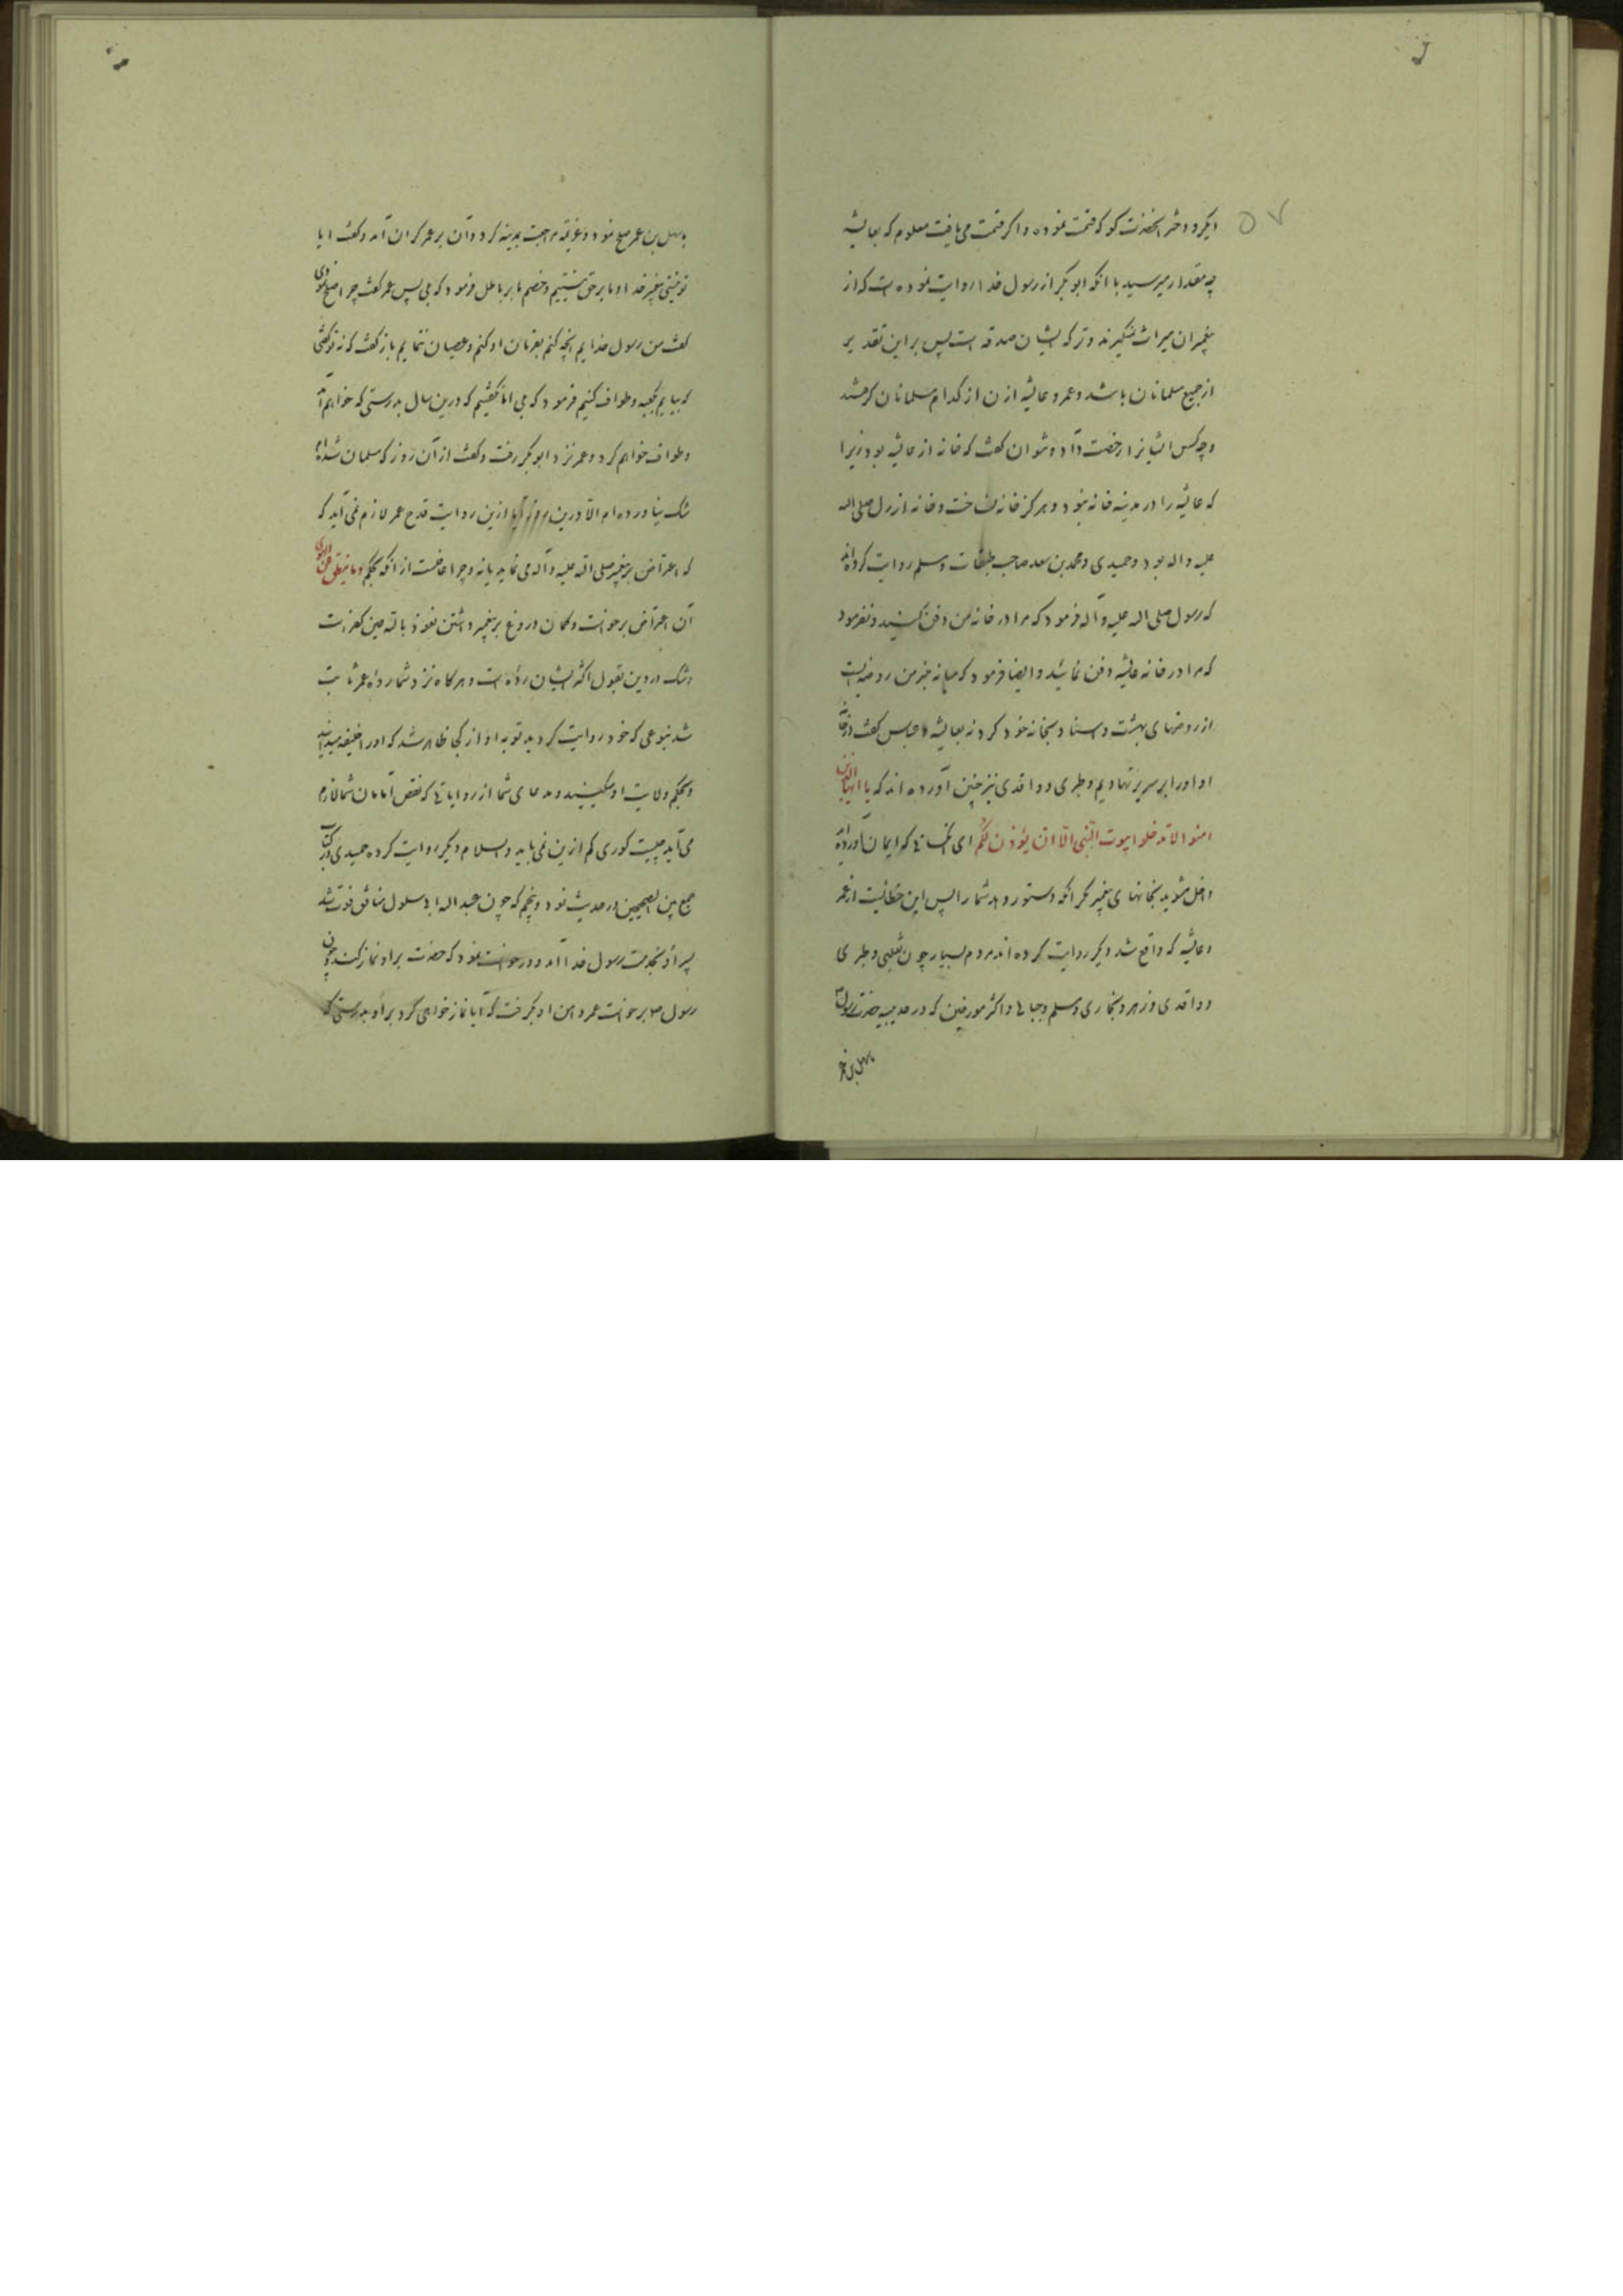 دیگر و دختر آنحضرت کو که قسمت نموده و اگر قسمت می یافت معلوم که بعایشه
چه مقدار میرسید با آنکه ابو بکر از رسول خدا روایت نموده است که از
پیغمبران میراث نمیگیرند و ترکه ایشان صدقه است پس بر این تقدیر
از جمیع مسلمانان باشد و عمر و عایشه اذن از کدام مسلمانان گرفتند
و چه کس ایشانرا رخصت داد و نتوان گفت که خانه از عایشه بود زیرا
که عایشه را در مدینه خانه نبود و هرگز خانه نساخت و خانه از رسول صلی الله
علیه و اله بود و حمیدی و محمد بن سعد صاحب طبقات و مسلم روایت کرده‌اند
که رسول صلی الله علیه و آله فرمود که مرا در خانه من دفن کنید و نفرمود
که مرا در خانه عایشه دفن نمائید و ایضا فرمود که میانه منبر من روضه ایست
از روضهای بهشت و اسناد بخانه خود کرد نه بعایشه و عباس گفت در خانه
او او را بر سریر نهادیم و طبری و واقدی نیز چنین آورده اند که یا ایها الذین
امنوا لا تدخلوا بیوت النبی الا ان یؤذن لکم ای کسانی که ایمان آورده اید
داخل مشوید بخانهای پیغمبر مگر آنکه دستور دهد شما را پس این خطائیست از عمر
و عایشه که واقع شد دیگر روایت کرده اند مردم بسیار چون ثعلبی و طبری
و واقدی و زهر و بخاری و مسلم و جبائی و اکثر مورخین که در حدیبیه حضرت رسول
بسهل بن عمر
بسهل بن عمر صلح نمود و عزیمة مراجعت بمدینه کرد و آن بر عمر گران آمد و گفت ایا
تو نیستی پیغمبر خدا و ما بر حق نیستیم و خصم ما بر باطل فرمود که بلی پس عمر گفت چرا صلح نمودی
گفت من رسول خدایم آنچه کنم بفرمان او کنم و عصیان ننمایم باز گفت که نه تو گفتی
که بیایم بکعبه و طواف کنیم فرمود که بلی اما نگفتیم که درین سال بدرستی که خواهم آمد
و طواف خواهم کرد و عمر نزد ابو بکر رفت و گفت از آن روز که مسلمان شده ام
شک نیاورده ام الا درین روز آیا ازین روایت قدح عمر لازم نمی آید که
که اعتراض بر پیغمبر صلی الله علیه و آله می نماید یا نه و چرا غافلست از آنکه بحکم و ما ینطق عن الهوی
آن اعتراض بر خداست و گمان دروغ بر پیغمبر داشتن نعوذ بالله عین کفر است
و شک در دین بقول اکثر ایشان رده است و هرگاه نزد شما رده عمر ثابت
شد بنوعی که خود روایت کردید توبه او از کجا ظاهر شد که او را خلیفه میدانید
و بحکم ولایت او میکنید و مدعای شما از روایاتی که نقص امامان شما لازم
می آید چیست کوری کم ازین نمی باید و السلام دیگر روایت کرده حمیدی در کتاب
جمع بین الصحیحین در حدیث نود و پنجم که چون عبد الله ابی سلول منافق فوت شد
پسر او بخدمت رسول خدا آمد و درخواست نمود که حضرت بر او نماز کند و چون
رسول صلعم برخاست عمر دامن او بگرفت که آیا نماز خواهی کرد بر او بدرستی که